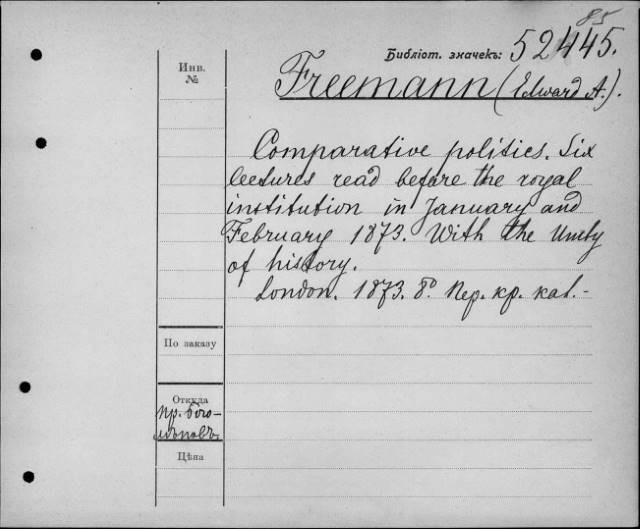 85
Библіот. значекъ: 52445.
Инв.
№
Freemann (Edward A.).
Comparative politics. Six
lectures read before the royal
institution in January and
February 1873. With the Unity
of history.
London. 1873. 8º Пер. кр. кал.-
По заказу
Откуда
Пр. Бого-
лѣповъ.
Цѣна